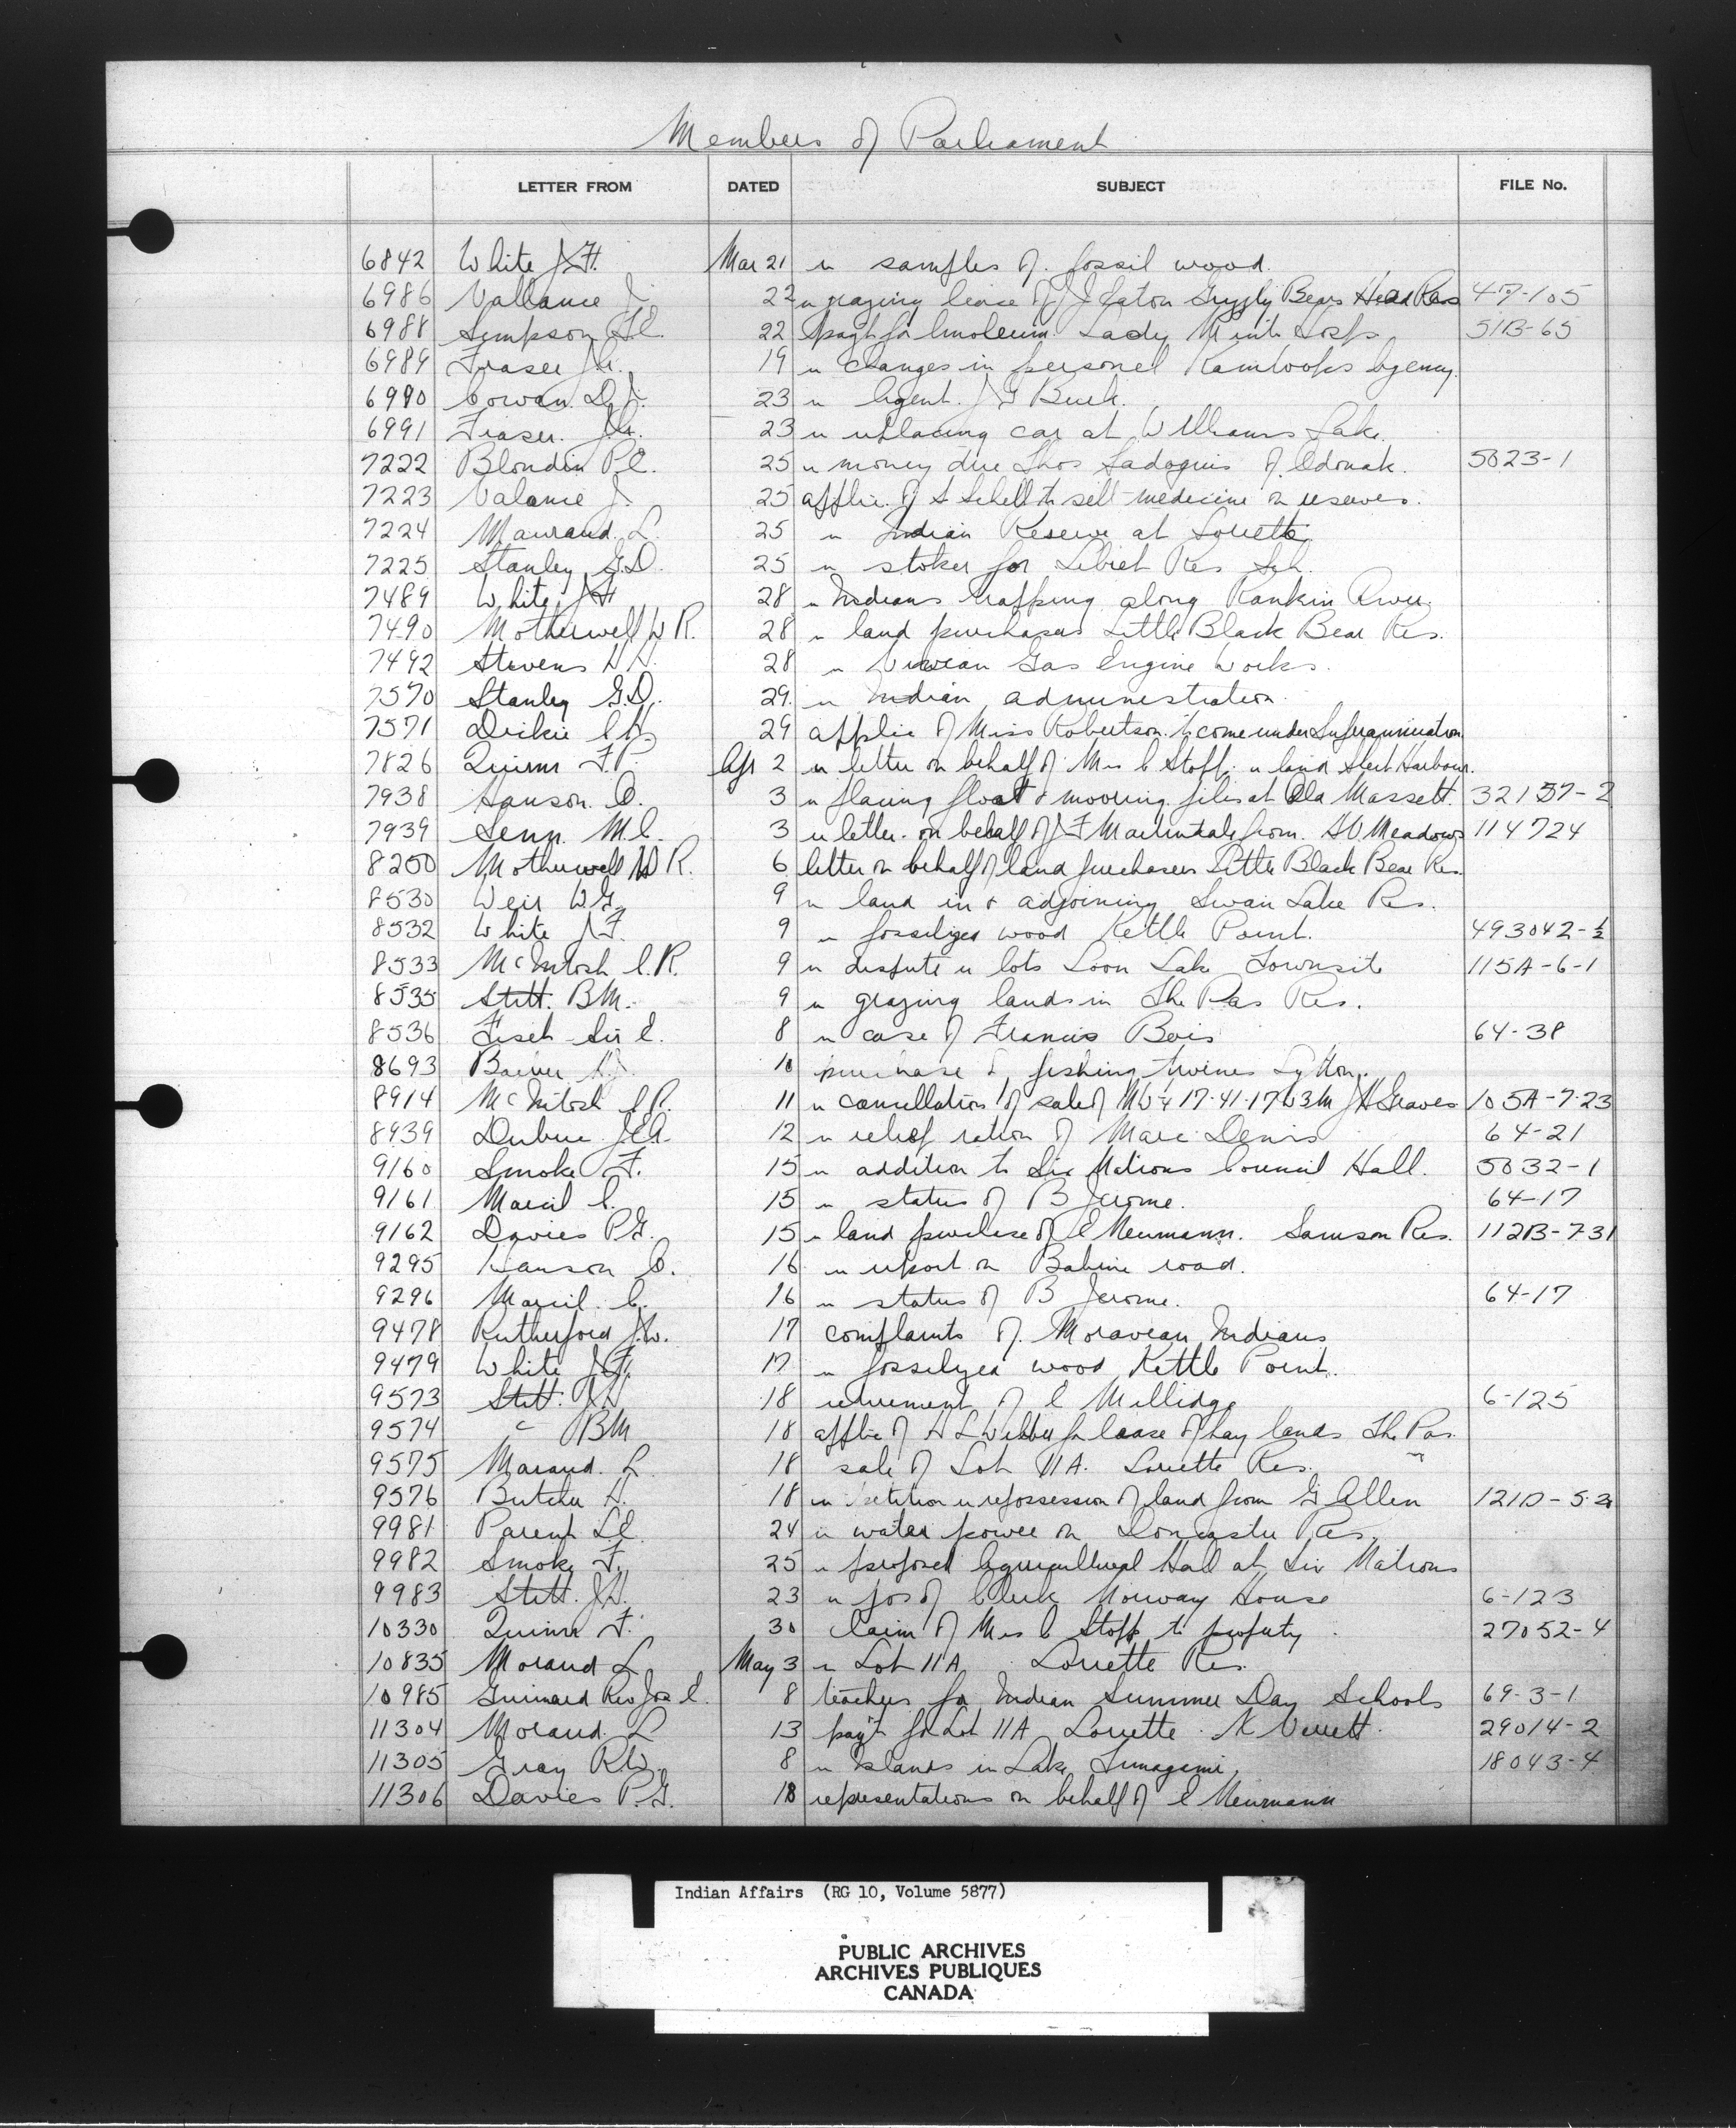 Members of Parliament
LETTER FROM DATED SUBJECT FILE No.
6842 White J.F. Mar 21 re samples of fossil wood.
6986 Vallance J. 22 re grazing lease of J J Eaton Grizzly Bears Head Res 47-105
6988 Simpson 22 pay't for linoleum Lady Minto Hosp 51B-65
6989 Fraser J.A. 19 re changes in personel Kamloops Agency.
6990 Cowan D.J. 23 re Agent J G Burk.
6991 Fraser. J.A. 23 re replacing car at Williams Lake.
7222 Blondin P.E. 25 re money due Thos of Odonak. 5023-1
7223 Valance J. 25 applic. of to sell medicine on reserves.
7224 L. 25 re Indian Reserve at Lorette
7225 Stanley G.D. 25 re stoker for Lebret Res Sch.
7489 White J F 28 re Indians trapping along Rankin River.
7490 Motherwell W R. 28 re land purchasers Little Black Bear Res.
7492 Stevens H H. 28 re Vivian Gas Engine Works.
7570 Stanley G.D. 29. re Indian administration.
7571 Dickie C H 29 applic of Miss Robertson to come under Superannuation
7826 Quinn F.P. Apr 2 re letter on behalf of Mrs C Stopp re land Harbour.
7938 Hanson. O. 3 re placing float & mooring piles at Old Massett. 32157-2
7939 Senn. M.C. 3 re letter on behalf of J F Martindale from Meadows 114724
8200 Motherwell W R. 6 letter on behalf of land purchasers Little Black Bear Res.
8530 Weir W.G. 9 re land in & adjoining Swan Lake Res.
8532 White J F. 9 re fossilized wood Kettle Point. 493042-½
8533 McIntosh C.R. 9 re dispute re lots Loon Lake Townsite 115A-6-1
8535 Stitt. B M. 9 re grazing lands in The Pas Res.
8536 Fiset Sir E. 8 re case of Francis Bois 64-38
8693 Barber H.J. 10 purchase of fishing twines Lytton.
8914 McIntosh C.R. 11 re cancellation of sale of NW¼ 17-41-17 W3M J H Graves 105A-7-23
8939 Dubuc J.E.A. 12 re relief ration of Marc Denis 64-21
9160 Smoke F. 15 re addition to Six Nations Council Hall. 5032-1
9161 Marcil C. 15 re status of B Jerome. 64-17
9162 Davies P.G. 15 re land purchase of C Neumann. Samson Res. 112B-7-31
9295 Hanson O. 16 re report on Babine road.
9296 Marcil. C. 16 re status of B Jerome. 64-17
9478 Rutherford J.W. 17 complaints of Moravean Indians
9479 White J.F. 17 re fossilized wood Kettle Point.
9573 Stitt. J H 18 retirement of C Millidge 6-125
9574 " B M 18 applic of H L Webber for lease of hay lands The Pas.
9575 Morand. L 18 sale of Lot 11A. Lorette Res.
9576 Butcher H. 18 re petition re repossession of land from G Allen 121D-5-2
9981 Parent C. 24 re water power on Doncaster Res.
9982 Smoke F. 25 re proposed Agricultural Hall at Six Nations
9983 Stitt. J.H. 23 re pos of Clerk Norway House 6-123
10330 Quinn F. 30 Claim of Mrs C Stopp to property. 27052-4
10835 Morand L May 3 re Lot 11A Lorette Res.
10985 Guinard Rev Jos E. 8 teachers for Indian Summer Day Schools 69-3-1
11304 Morand. L 13 pay't for Lot 11A Lorette. 29014-2
11305 Gray R.W. 8 re Islands in Lake Timagami, 18043-4
11306 Davies P.G. 18 representations on behalf of C Neumann
Indian Affairs (RG 10, Volume 5877)
PUBLIC ARCHIVES
ARCHIVES PUBLIQUES
CANADA